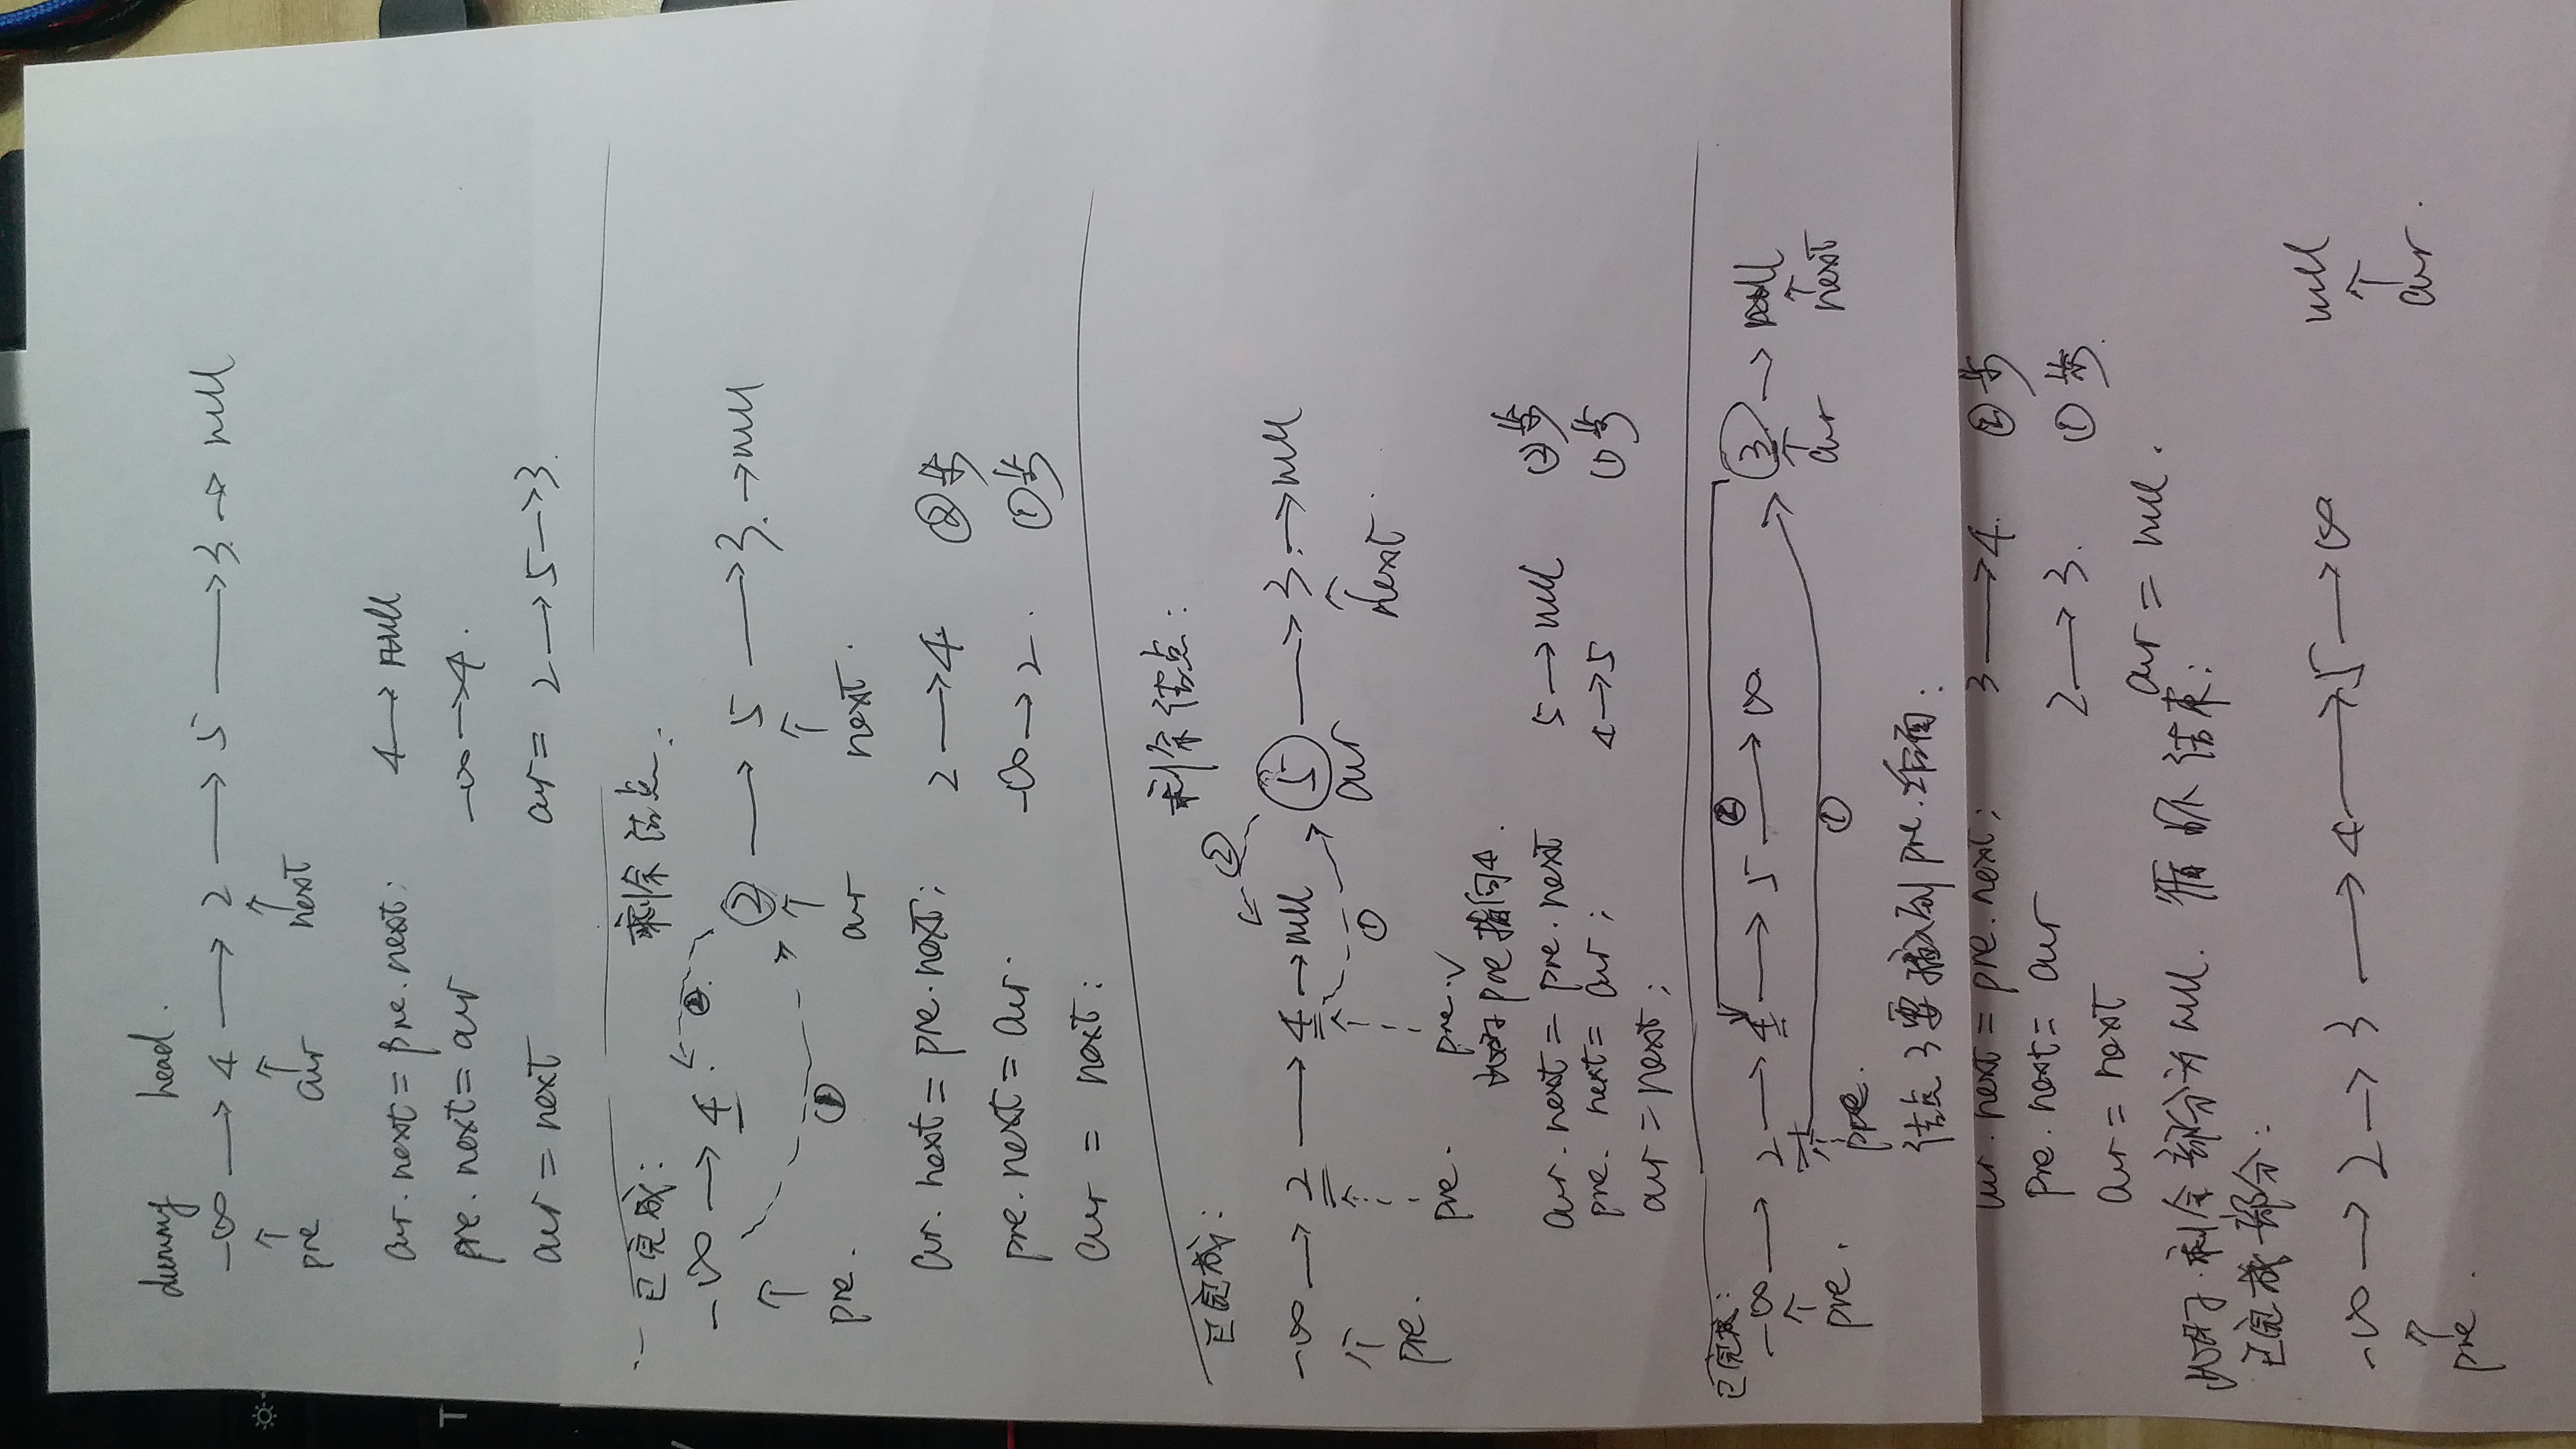 dummy head.
-∞ → 4 → 2 → 5 → 3. → null
↑ ↑ ↑
pre cur next
cur.next = pre.next; 4 → null
pre.next = cur -∞ → 4.
cur = next cur = 2 → 5 → 3.
已完成: 剩余结点:
-∞ → 4. ②.
② → 5 → 3. → null
↑ ↑ ↑
① 
pre. cur next.
cur.next = pre.next; 2 → 4. ②步
pre.next = cur. -∞ → 2. ①步
cur = next;
剩余结点:
已完成:
②
-∞ → 2 → 4 → null ⑤ → 3. → null
① cur
↑ ↑ ↑ ↑
pre. pre. pre.✓ next.
此时pre指向4.
cur.next = pre.next 5 → null ②步
pre.next = cur; 4 → 5 ①步
cur = next;
已完成:
②
-∞ → 2 → 4 → 5 → ∞ ③ → null
↑ ↑ ↑ ↑
pre. pre. ① cur next
结点3要插入到pre.后面:
cur.next = pre.next; 3 → 4. ②步
pre.next = cur 2 → 3. ①步.
cur = next cur = null.
此时.剩余部分为null. 循环结束;
已完成部分:
-∞ → 2 → 3 → 4 → 5 → ∞ null
↑ ↑
pre. cur.